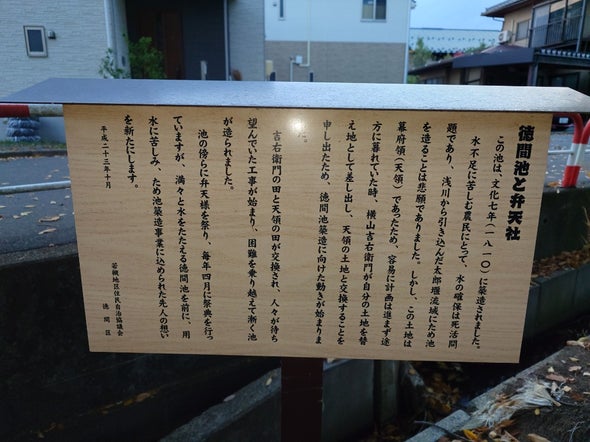 徳間池と弁天社
この池は、文化七年(一八一〇)に築造されました。
水不足に苦しむ農民にとって、水の確保は死活問
題であり、浅川から引き込んだ太郎堰流域にため池
を造ることは悲願でありました。しかし、この土地は
幕府領(天領)であったため、容易に計画は進まず途
方に暮れていた時、横山吉右衛門が自分の土地を替
え地として差し出し、天領の土地と交換することを
申し出たため、徳間池築造に向けた動きが始まりま
した。
吉右衛門の田と天領の田が交換され、人々が待ち
望んでいた工事が始まり、困難を乗り越えて漸く池
が造られました。
池の傍らに弁天様を祭り、毎年四月に祭典を行っ
ていますが、満々と水をたたえる徳間池を前に、用
水に苦しみ、ため池築造事業に込められた先人の想い
を新たにします。
平成二十三年十月
若槻地区住民自治協議会
徳間区